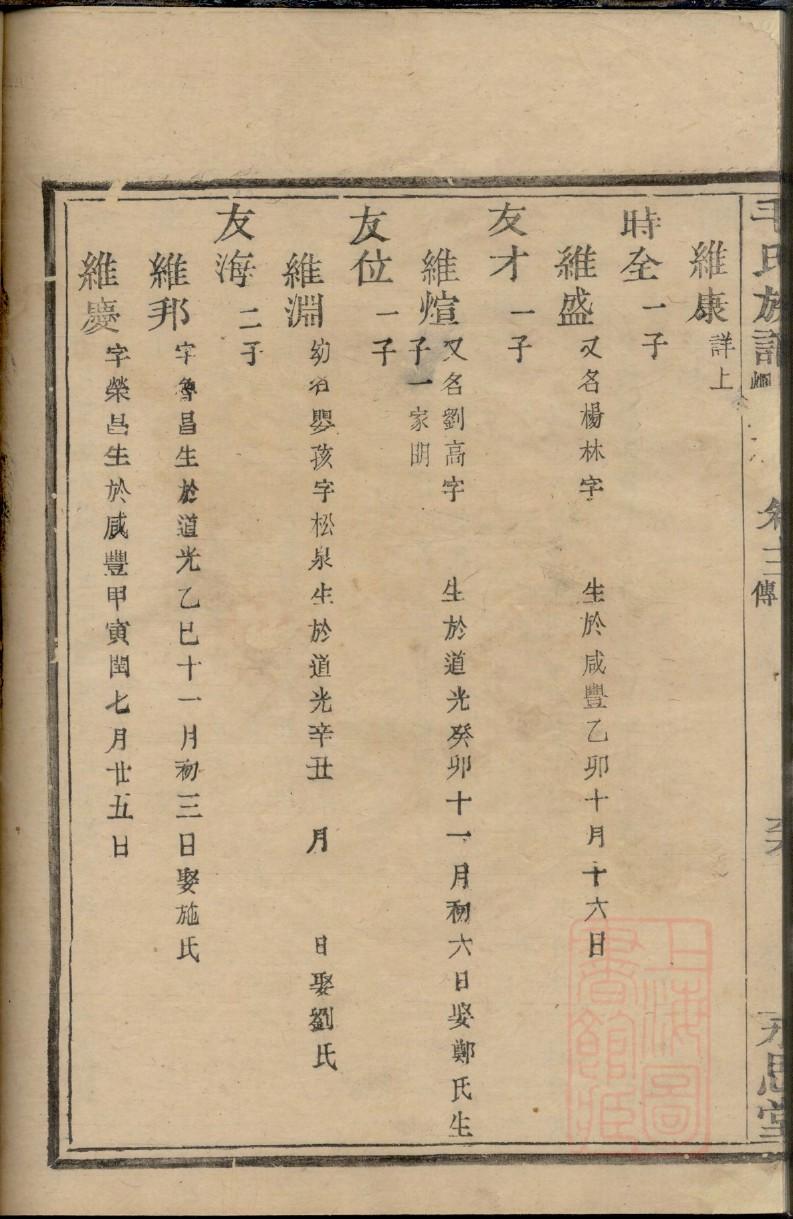 毛氏族譜
卷三
傳
永思堂
維康 詳上
時全 一子
維盛 又名楊林字 生於咸豐乙卯十月十六日
友才 一子
維煊 又名劉高字 生於道光癸卯十一月初六日娶鄭氏生
子一家明
友位 一子
維淵 幼名嬰孩字松泉生於道光辛丑 月 日娶劉氏
友海 二子
維邦 字魯昌生於道光乙巳十一月初三日娶施氏
維慶 字榮昌生於咸豐甲寅閏七月廿五日
上海圖
書館藏